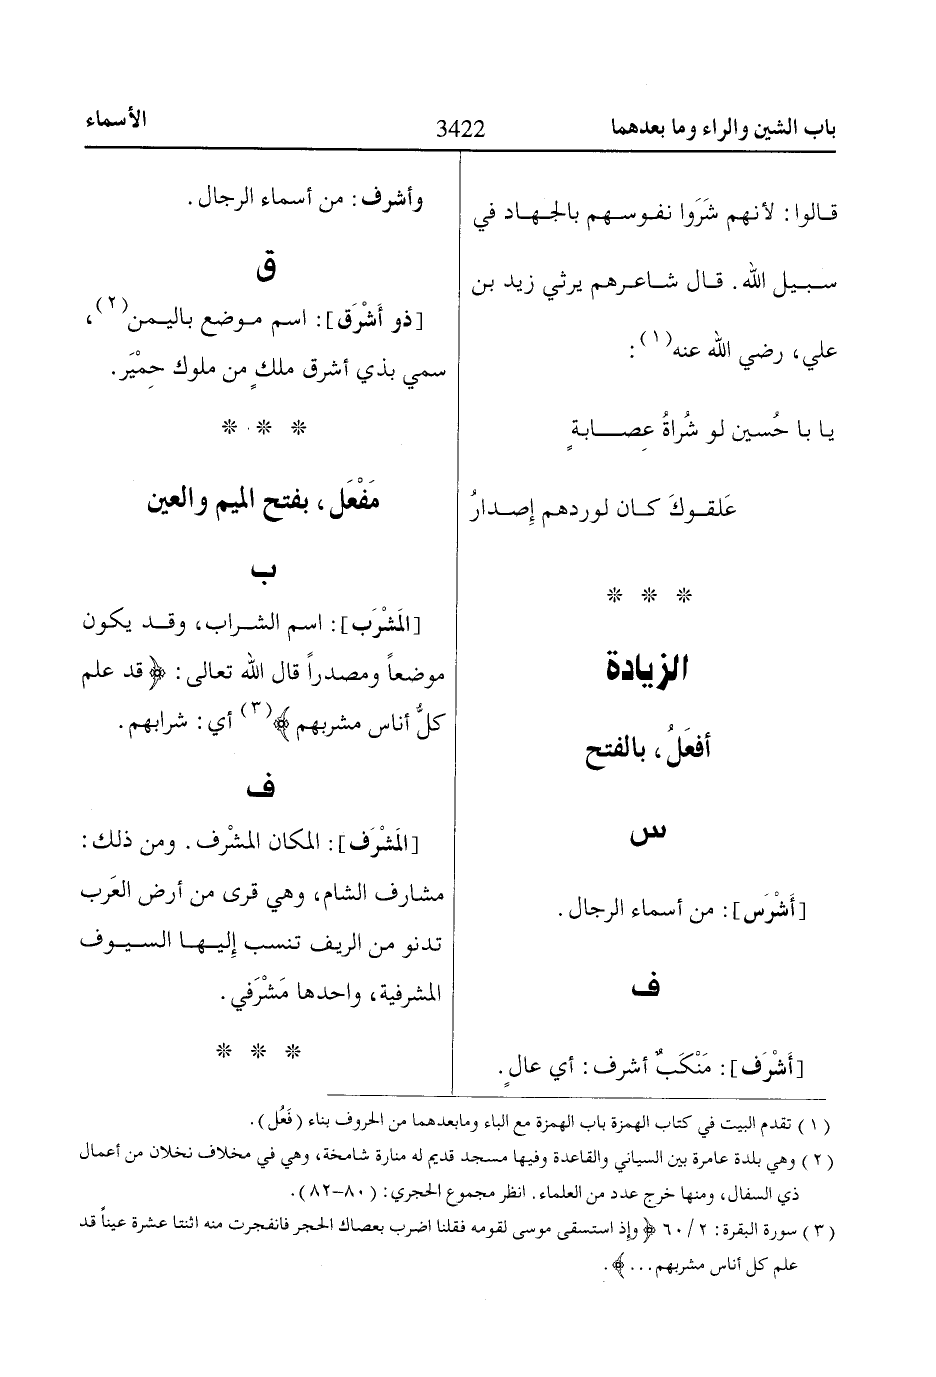 باب الشين والراء وما بعدهما
3422
الأسماء
قالوا: لأنهم شَرَوا نفوسهم بالجهاد في
سبيل الله. قال شاعرهم يرثي زيد بن
علي، رضي الله عنه(١):
يا با حُسين لو شُراةُ عِصابةٍ
عَلقوكَ كان لوردهم إصدارُ
* * *
الزيادة
أفعَلُ، بالفتح
س
[أَشْرَس]: من أسماء الرجال.
ف
[أَشْرَف]: مَنْكَبٌ أشرف: أي عالٍ.
وأشرف: من أسماء الرجال.
ق
[ذو أَشْرَق]: اسم موضع باليمن(٢)،
سمي بذي أشرق ملكٍ من ملوك حِمْيَر.
* * *
مَفْعَل، بفتح الميم والعين
ب
[المَشْرَب]: اسم الشراب، وقد يكون
موضعاً ومصدراً قال الله تعالى: ﴿قد علم
كلُّ أناس مشربهم﴾(٣) أي: شرابهم.
ف
[المَشْرَف]: المكان المشْرف. ومن ذلك:
مشارف الشام، وهي قرى من أرض العَرب
تدنو من الريف تنسب إليها السيوف
المشرفية، واحدها مَشْرَفي.
* * *
(١) تقدم البيت في كتاب الهمزة باب الهمزة مع الباء ومابعدهما من الحروف بناء (فَعُل).
(٢) وهي بلدة عامرة بين السياني والقاعدة وفيها مسجد قديم له منارة شامخة، وهي في مخلاف نخلان من أعمال
ذي السفال، ومنها خرج عدد من العلماء. انظر مجموع الحجري: (٨٠–٨٢).
(٣) سورة البقرة: ٢/ ٦٠ ﴿وإذ استسقى موسى لقومه فقلنا اضرب بعصاك الحجر فانفجرت منه اثنتا عشرة عيناً قد
علم كل أناس مشربهم...﴾.